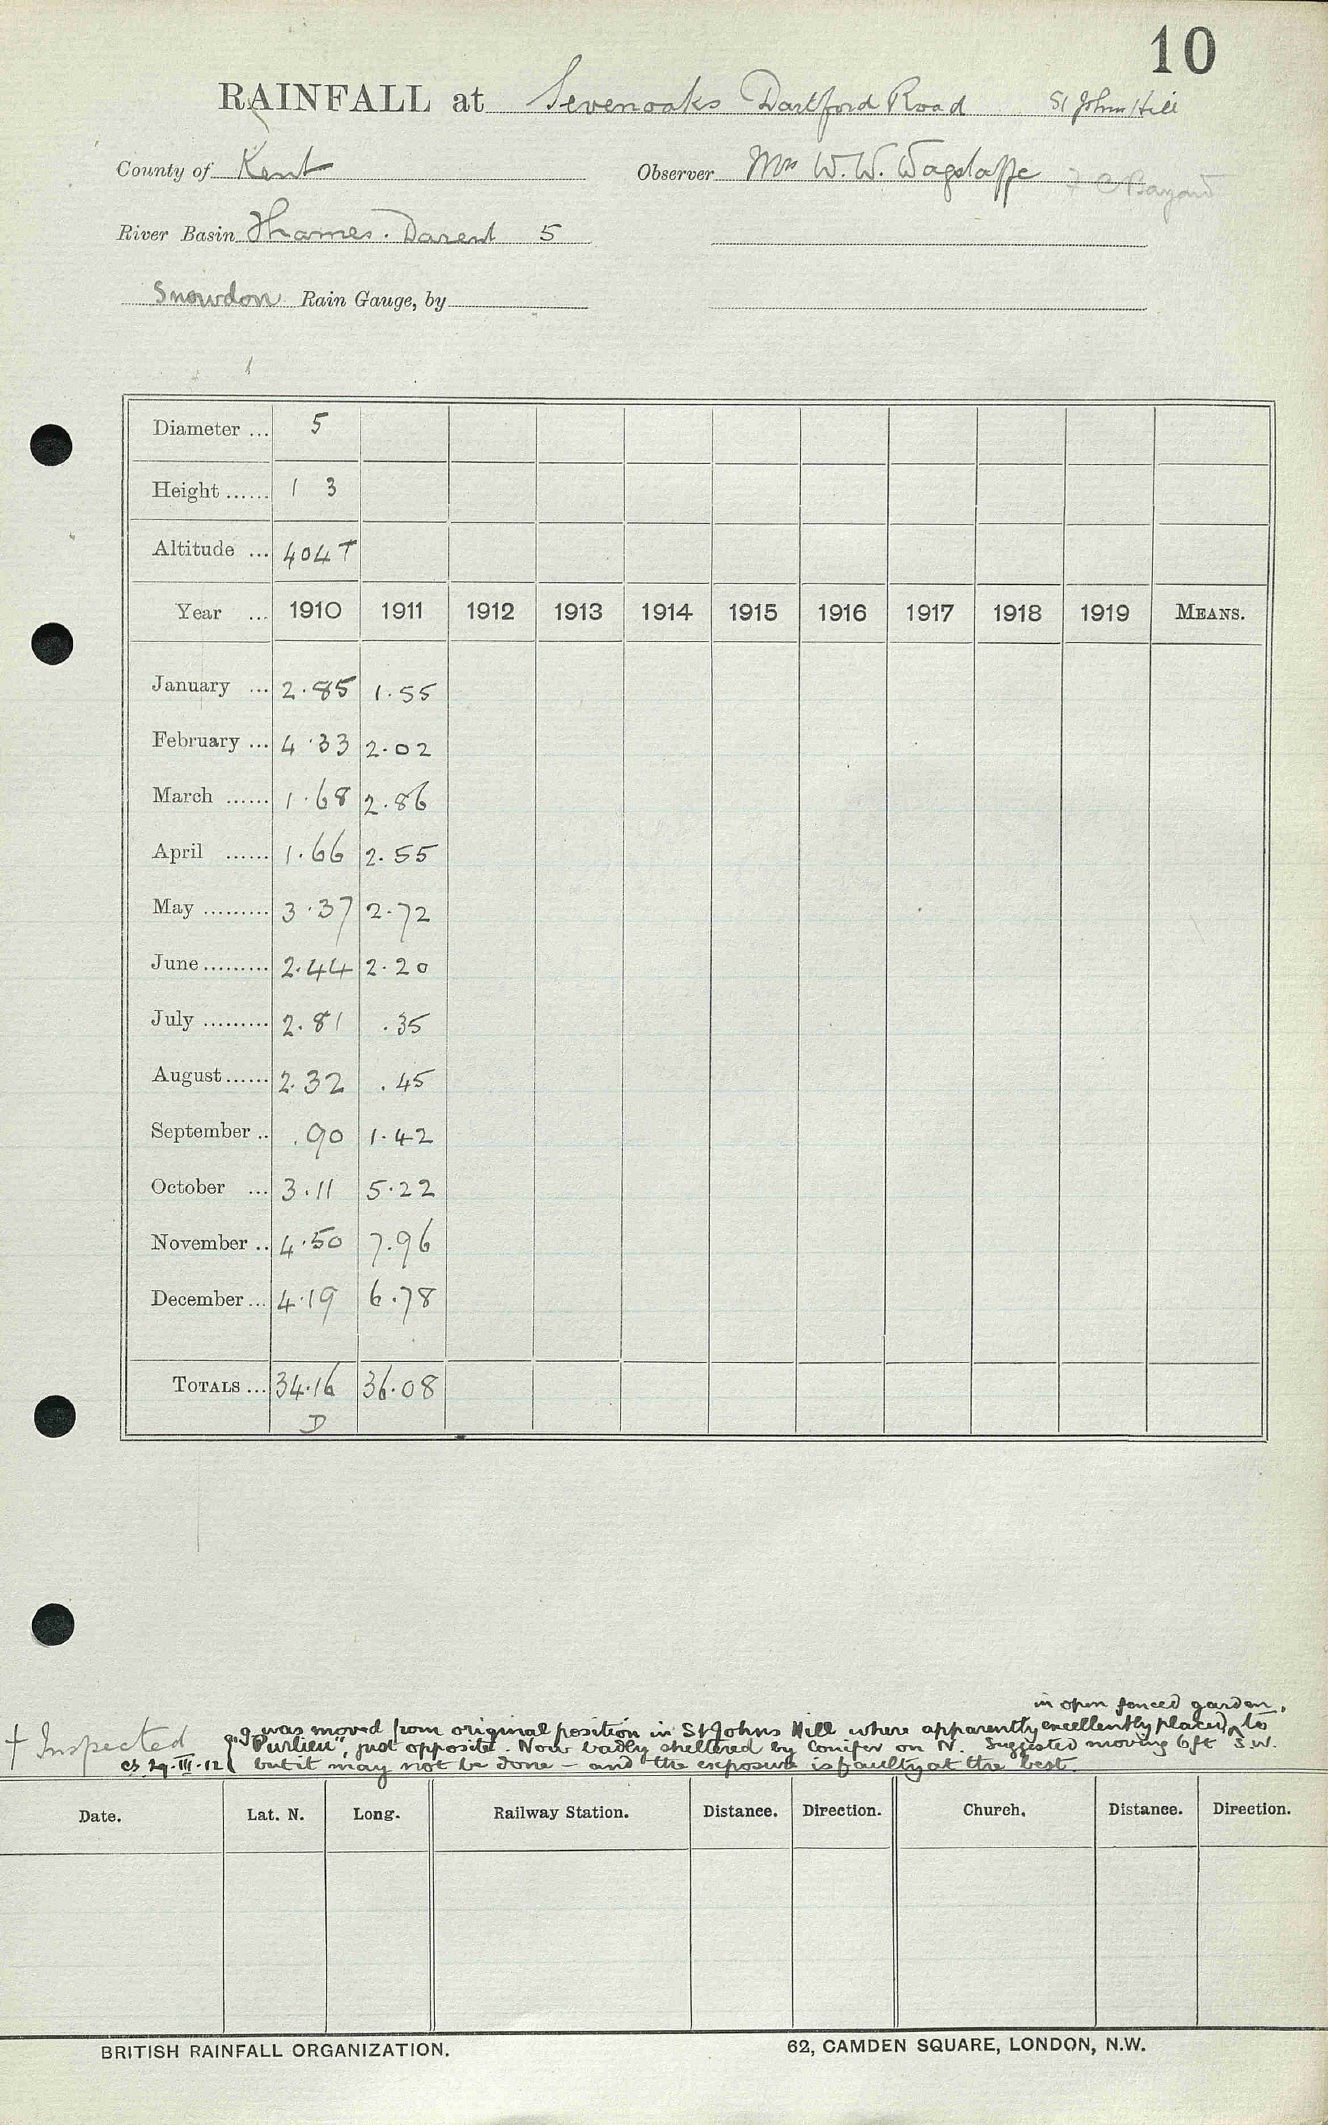 10
RAINFALL at Sevenoaks Dartford Road St Johns Hill
County of Kent Observer Mrs W. W. Wagstaffe F C Bayard
River Basin Thames. Darent 5
Snowdon Rain Gauge, by
Diameter ... 5
Height ...... 1 3
Altitude ... 404 T
Year ... 1910 1911 1912 1913 1914 1915 1916 1917 1918 1919 MEANS.
January ... 2.85 1.55
February ... 4.33 2.02
March ...... 1.68 2.86
April ...... 1.66 2.55
May ......... 3.37 2.72
June ......... 2.44 2.20
July ......... 2.81 .35
August ...... 2.32 .45
September .. .90 1.42
October ... 3.11 5.22
November .. 4.50 7.96
December ... 4.19 6.78
TOTALS ... 34.16 36.08
D
in open fenced garden,
† Inspected g. was moved from original position in St Johns Hill where apparently excellently placed, to
"Purlieu", just opposite. Now badly sheltered by Conifer on N. Suggested moving 6ft S.W.
29.III.12 but it may not be done — and the exposure is faulty at the best.
Date. Lat. N. Long. Railway Station. Distance. Direction. Church. Distance. Direction.
BRITISH RAINFALL ORGANIZATION. 62, CAMDEN SQUARE, LONDON, N.W.